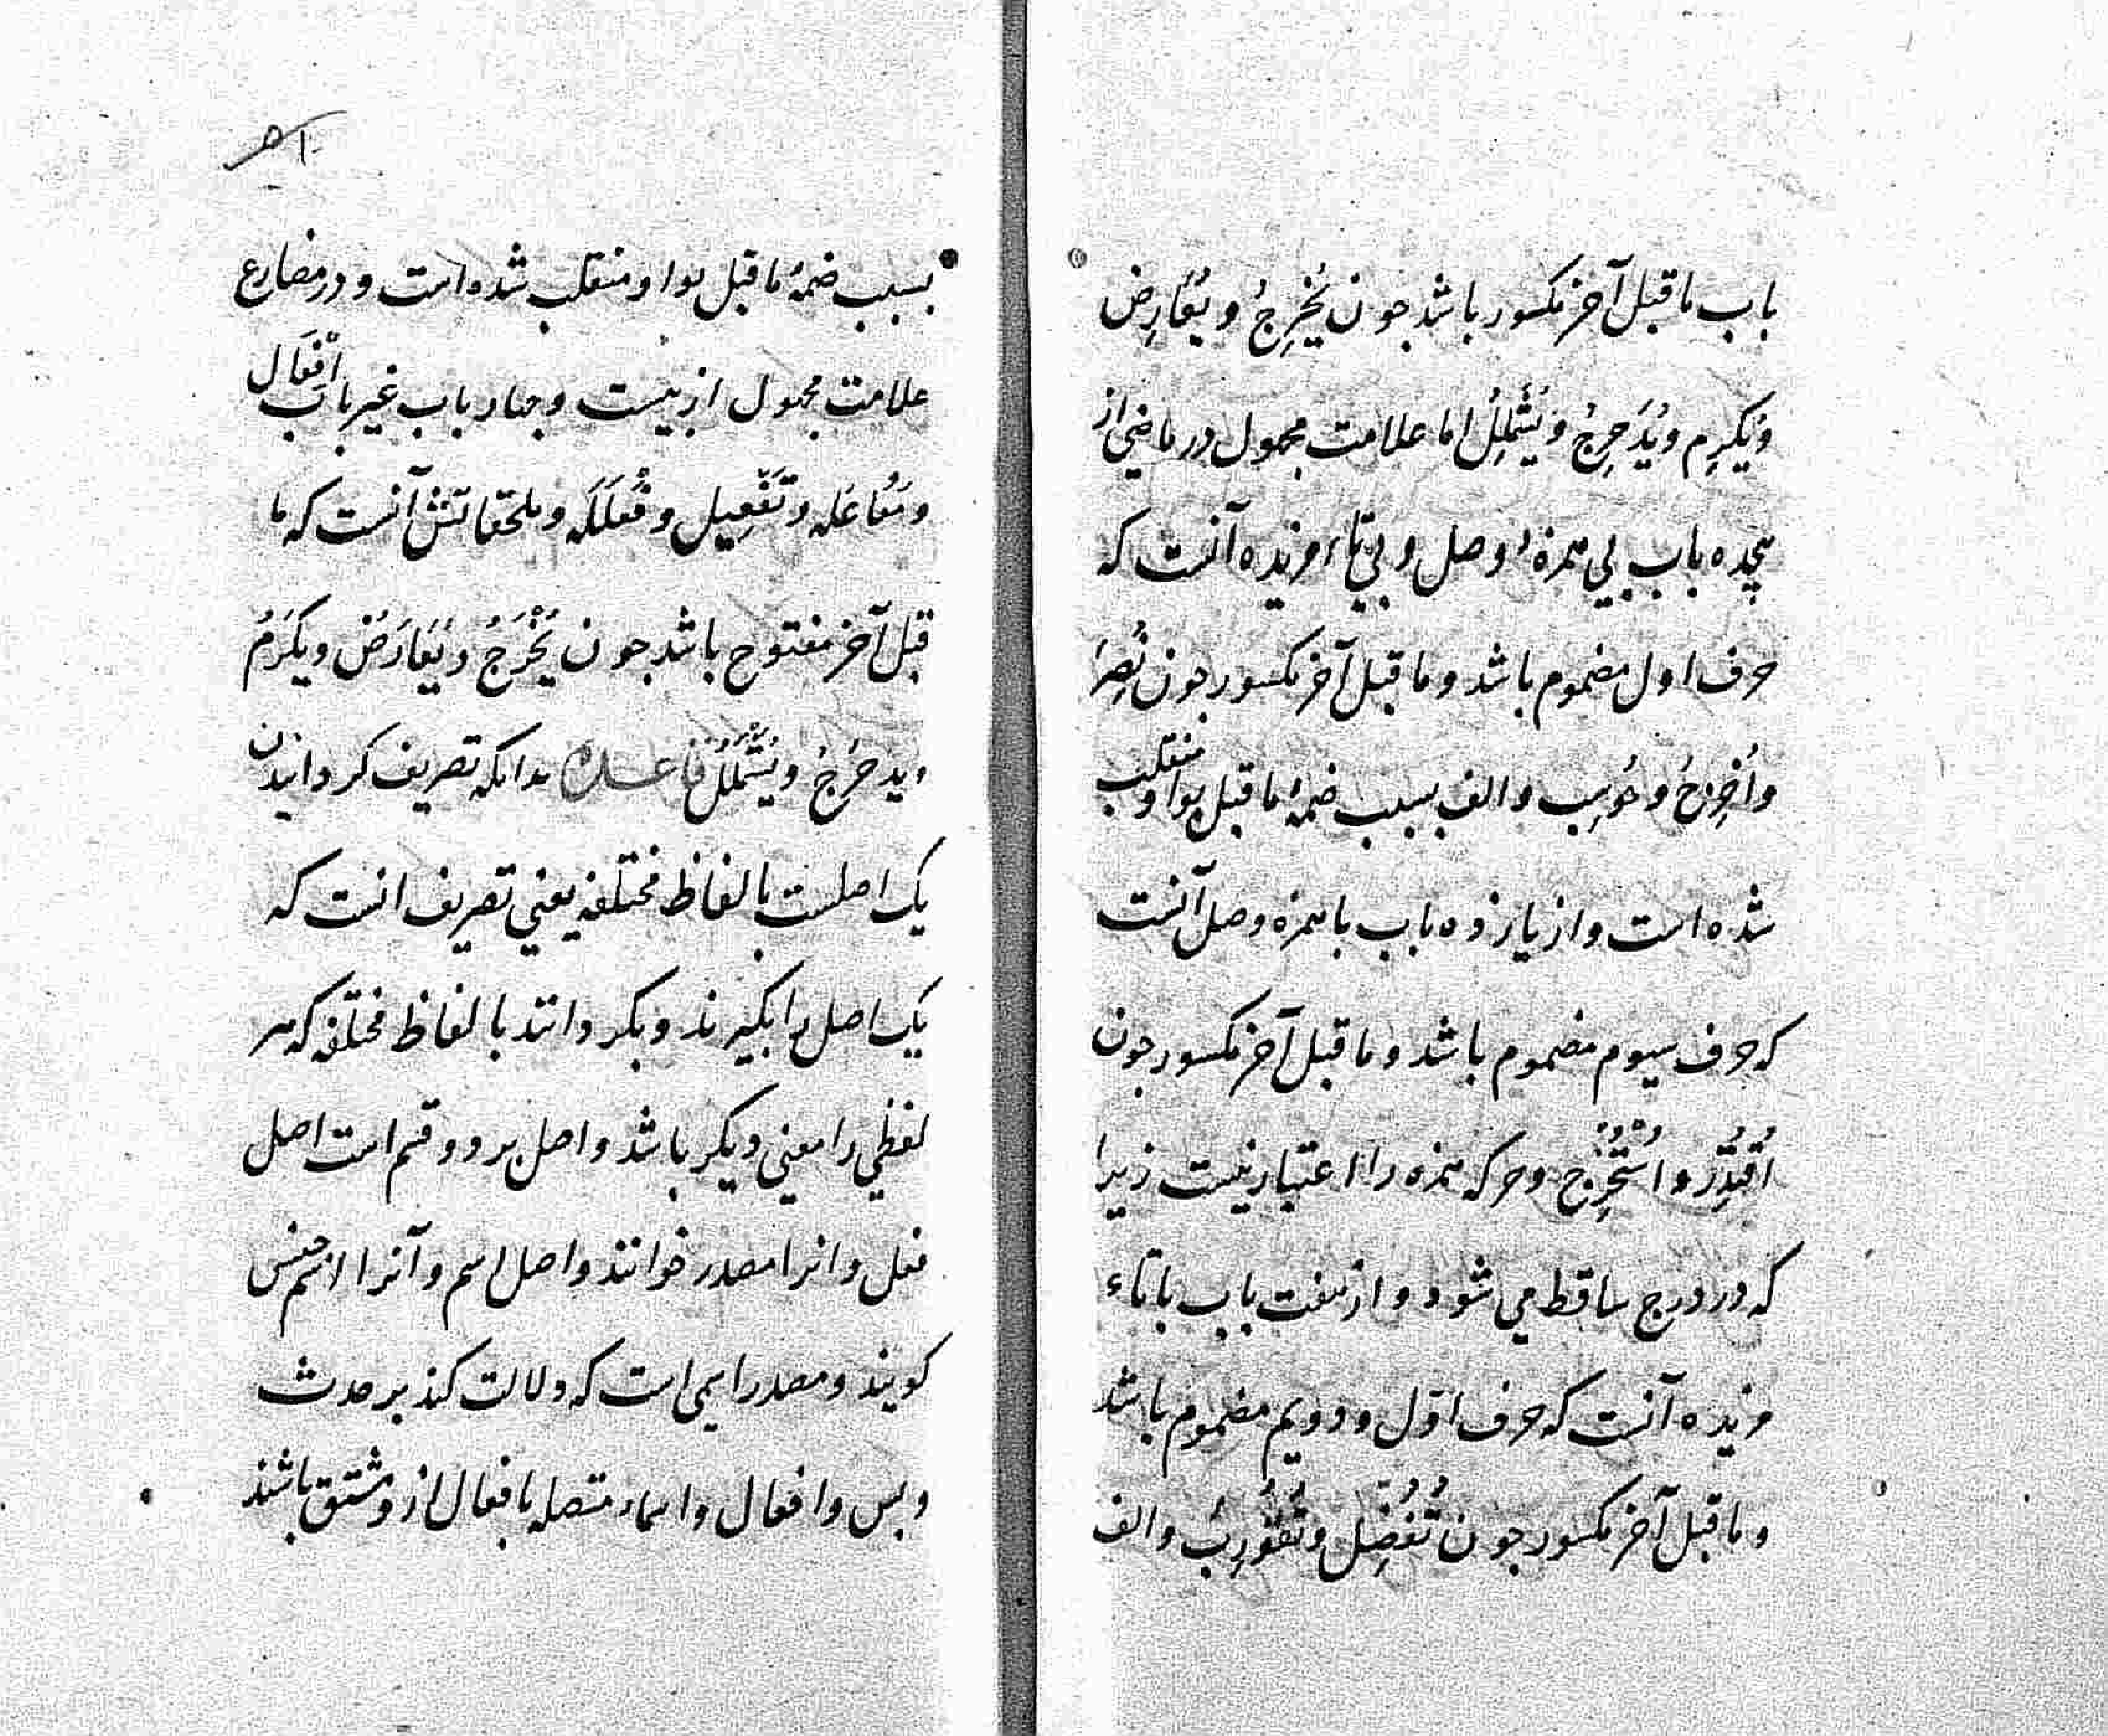 باب ماقبل آخر مکسور باشد جون یُخْرِجُ و یُعَارِض
وَیُکرِم ویُدَحرِجُ وَیُشْمْلِلُ اما علامت مجهول در ماضی از
هجده باب بی همزهٔ وصل و بی تاء مزیده آنست که
حرف اول مضموم باشد و ماقبل آخر مکسور جون نُصِرَ
واُخرِجَ و حُوسِب والف بسبب ضمهٔ ماقبل بواو منقلب
شده است و از یازده باب با همزه وصل آنست
که حرف سیوم مضموم باشد و ماقبل آخر مکسور جون
اُقتُدِرَ و اُسْتُخْرِج و حرکه همزه را اعتبار نیست زیرا
که در درج ساقط می شود و از هفت باب با تاء
مزیده آنست که حرف اوّل و دویم مضموم باشد
و ماقبل آخر مکسور جون تُفُضِّل و تُقُورِبَ والف
بسبب ضمهٔ ماقبل بواو منقلب شده است و در مضارع
علامت مجهول از بیست و جهار باب غیر باب اِفْعَال
ومُفاعَله و تَفْعِیل و فَعْلَلَه و ملحقاتش آنست که ما
قبل آخر مفتوح باشد جون یُخْرَجُ و یُعَارَضُ و یکرَمُ
ویدحرَجُ ویُشْمْلَلُ بدانکه تصریف کردانیدن
یک اصلست بالفاظ مختلفه یعنی تصریف انست که
یک اصل را بکیرند و بکردانند با لفاظ مختلفه که هر
لفظی را معنی دیکر باشد و اصل بر دو قسم است اصل
فعل و انرا مصدر خوانند و اصل اسم و آنرا اسم جنس
کویند و مصدر اسمی است که دلالت کند بر حدث
و بس و افعال و اسماء متصله بافعال از و مشتق باشند